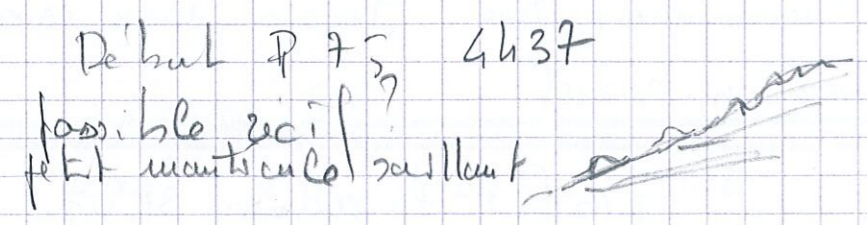 Début P 75 4h37
possible récif ?
petit monticule saillant